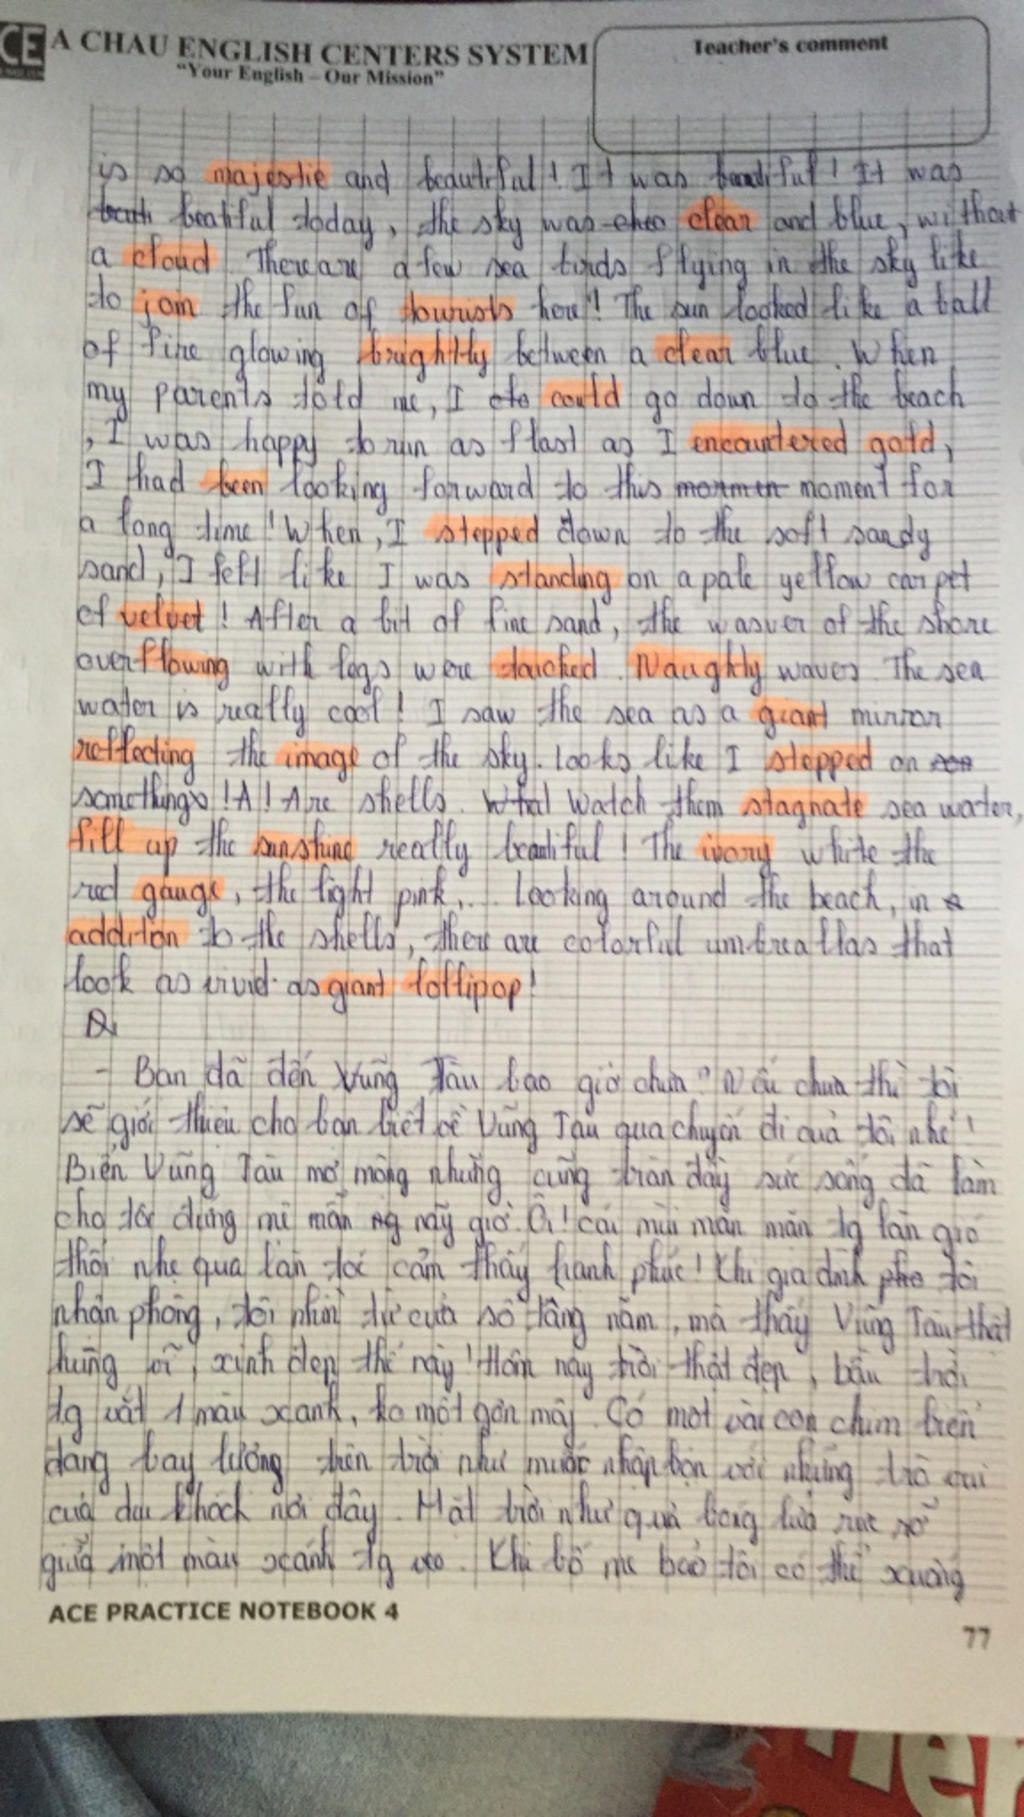 CE A CHAU ENGLISH CENTERS SYSTEM
"Your English – Our Mission"
Teacher's comment
is so majestic and beautiful! It was beautiful! It was
beatiful today, the sky was clear and blue, without
a cloud There are a few sea birds flying in the sky like
to join the fun of tourists here! The sun looked like a ball
of fire glowing brightly between a clear blue. When
my parents told me, I could go down to the beach
, I was happy to run as flast as I encountered gold,
I had been looking forward to this moment for
a long time! When, I stepped down to the soft sandy
sand, I felt like I was standing on a pale yellow carpet
of velvet! After a bit of fine sand, the of the shore
overflowing with legs were touched. Naughty waves The sea
water is really cool! I saw the sea as a giant mirror
reflecting the image of the sky. Looks like I stepped on
somethings! A! Are shells. Watch them stagnate sea water,
fill up the sunshine really beautiful! The ivory white the
red gauge, the light pink,... Looking around the beach, in
addition to the shells, there are colorful umbreallas that
look as vivid as giant lollipop!
- Bạn đã đến Vũng Tàu bao giờ chưa? Nếu chưa thì tôi
sẽ giới thiệu cho bạn biết về Vũng Tàu qua chuyến đi của tôi nhé!
Biển Vũng Tàu mơ mộng nhưng cũng tràn đầy sức sống đã làm
cho tôi mê mẩn giờ. Ôi! cái mùi mằn mặn tg làn gió
thổi nhẹ qua làn tóc cảm thấy hạnh phúc! Khi gia đình tôi
nhận phòng, tôi nhìn từ cửa sổ tầng năm, mà thấy Vũng Tàu thật
hùng vĩ, xinh đẹp thế này! Hôm nay trời thật đẹp, bầu trời
tg vắt 1 màu xanh, ko một gợn mây. Có một vài con chim biển
đang bay lượng trên trời như muốc nhập bọn với những trò vui
của du khách nơi đây. Mặt trời như quả bóng lửa rực rỡ
giữa một màu xanh tg veo. Khi bố mẹ bảo tôi có thể xuống
ACE PRACTICE NOTEBOOK 4
77